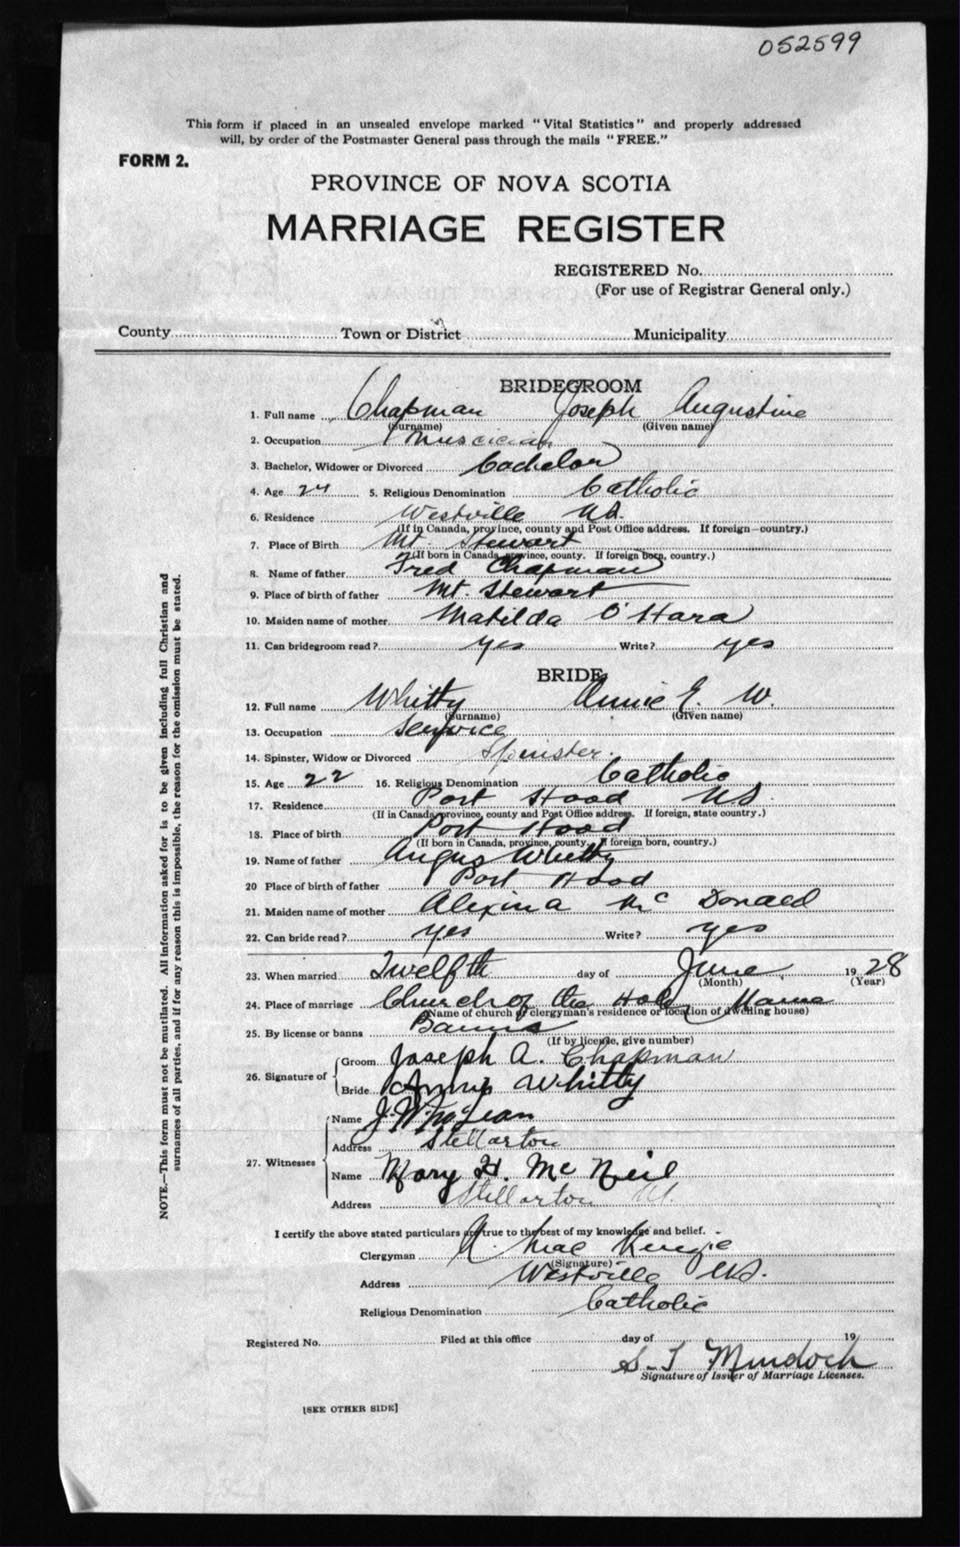 052599
This form if placed in an unsealed envelope marked "Vital Statistics" and properly addressed
will, by order of the Postmaster General pass through the mails "FREE."
FORM 2.
PROVINCE OF NOVA SCOTIA
MARRIAGE REGISTER
REGISTERED No.
(For use of Registrar General only.)
County Town or District Municipality
BRIDEGROOM
1. Full name Chapman Joseph Augustine
(Surname) (Given name)
2. Occupation Muscician
3. Bachelor, Widower or Divorced Bachelor
4. Age 24 5. Religious Denomination Catholic
6. Residence Westville N.S.
(If in Canada, province, county and Post Office address. If foreign—country.)
7. Place of Birth Mt. Stewart
(If born in Canada, province, county. If foreign born, country.)
8. Name of father Fred Chapman
9. Place of birth of father Mt. Stewart
10. Maiden name of mother Matilda O'Hara
11. Can bridegroom read? yes Write? yes
BRIDE
12. Full name Whitty Annie E. W.
(Surname) (Given name)
13. Occupation Service
14. Spinster, Widow or Divorced Spinster.
15. Age 22 16. Religious Denomination Catholic
17. Residence Port Hood N.S.
(If in Canada, province, county and Post Office address. If foreign, state country.)
18. Place of birth Port Hood
(If born in Canada, province, county. If foreign born, country.)
19. Name of father Angus Whitty
20 Place of birth of father Port Hood
21. Maiden name of mother Alexina McDonald
22. Can bride read? yes Write? yes
23. When married Twelfth day of June 1928
(Month) (Year)
24. Place of marriage Church of the Holy Name
(Name of church or clergyman's residence or location of dwelling house)
25. By license or banns Banns
(If by license, give number)
26. Signature of Groom Joseph A. Chapman
Bride Annie Whitty
27. Witnesses Name J. W. McLean
Address Stellarton
Name Mary H. McNeil
Address Stellarton N.S.
I certify the above stated particulars are true to the best of my knowledge and belief.
Clergyman MacKenzie
(Signature)
Address Westville N.S.
Religious Denomination Catholic
Registered No. Filed at this office day of 19
S. T Murdoch
Signature of Issuer of Marriage Licenses.
[SEE OTHER SIDE]
NOTE.—This form must not be mutilated. All information asked for is to be given including full Christian and
surnames of all parties, and if for any reason this is impossible, the reason for the omission must be stated.